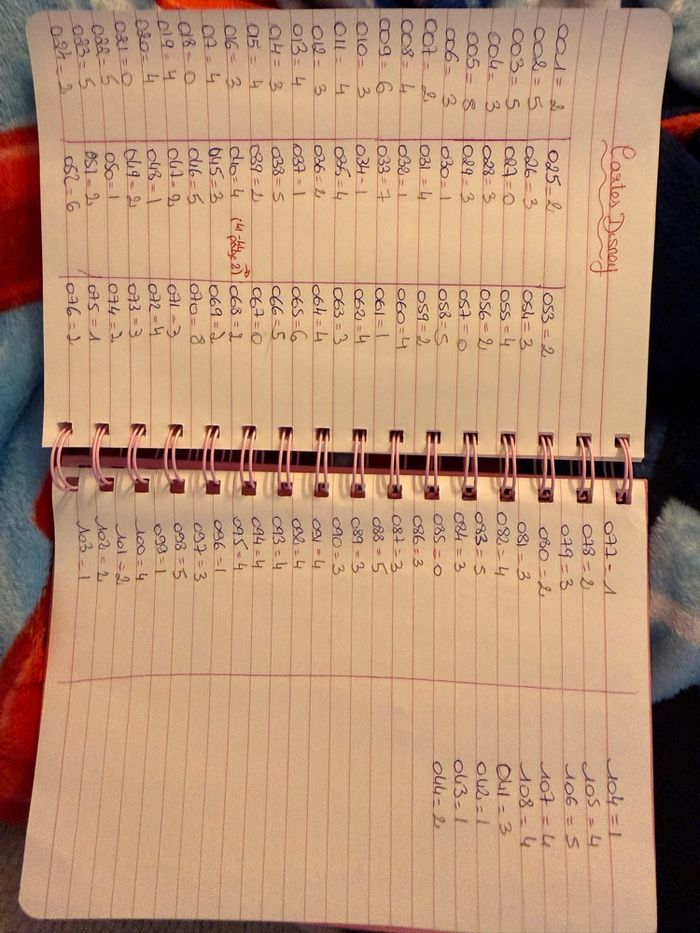 Cartes Disney
001 = 2
002 = 5
003 = 5
004 = 3
005 = 8
006 = 3
007 = 2
008 = 4
009 = 6
010 = 3
011 = 4
012 = 3
013 = 4
014 = 3
015 = 4
016 = 3
017 = 4
018 = 0
019 = 4
020 = 4
021 = 0
022 = 5
023 = 5
024 = 2
025 = 2
026 = 3
027 = 0
028 = 3
029 = 3
030 = 1
031 = 4
032 = 1
033 = 7
034 = 1
035 = 4
036 = 2
037 = 1
038 = 5
039 = 2
040 = 4 (41-44 → page 2)
045 = 3
046 = 5
047 = 2
048 = 1
049 = 2
050 = 1
051 = 2
052 = 6
053 = 2
054 = 3
055 = 4
056 = 2
057 = 0
058 = 5
059 = 2
060 = 4
061 = 1
062 = 4
063 = 3
064 = 4
065 = 6
066 = 5
067 = 0
068 = 2
069 = 2
070 = 8
071 = 3
072 = 4
073 = 3
074 = 2
075 = 1
076 = 2
077 = 1
078 = 2
079 = 3
080 = 2
081 = 3
082 = 4
083 = 5
084 = 3
085 = 0
086 = 3
087 = 3
088 = 5
089 = 3
090 = 3
091 = 4
092 = 4
093 = 4
094 = 4
095 = 4
096 = 1
097 = 3
098 = 5
099 = 1
100 = 4
101 = 2
102 = 2
103 = 1
104 = 1
105 = 4
106 = 5
107 = 4
108 = 4
041 = 3
042 = 1
043 = 1
044 = 2